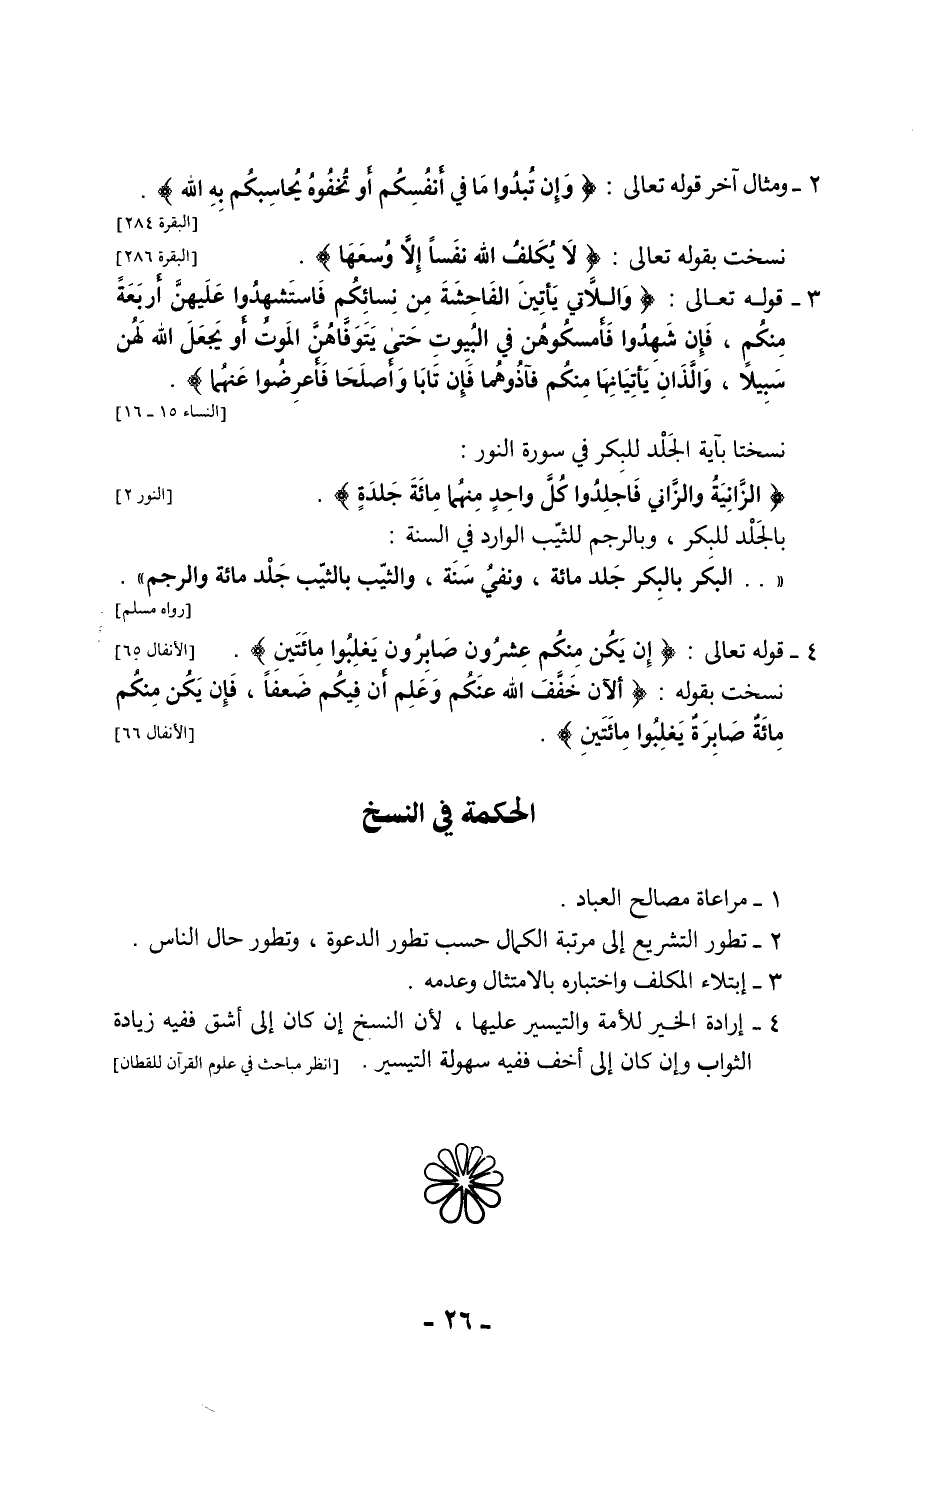 ٢ ـ ومثال آخر قوله تعالى : ﴿ وَإِن تُبدُوا مَا في أَنفُسِكُم أَو تُخفُوهُ يُحاسِبكُم بِهِ الله ﴾ .
[البقرة ٢٨٤]
نسخت بقوله تعالى : ﴿ لَا يُكَلفُ الله نفَساً إلَّا وُسعَهَا ﴾ . [البقرة ٢٨٦]
٣ ـ قوله تعالى : ﴿ وَاللاَّتي يَأتِينَ الفَاحِشَةَ مِن نِسائِكُم فَاستَشهِدُوا عَلَيهِنَّ أَربَعَةً
مِنكُم ، فَإِن شَهِدُوا فَأَمسكُوهُن في البُيوتِ حَتىٰ يَتَوَفَّاهُنَّ المَوتُ أو يَجعَلَ الله لَهُن
سَبيلًا ، وَالَّذَانِ يَأتِيَانِهَا مِنكُم فآذُوهُما فَإِن تَابَا وَأَصلَحَا فَأَعرِضُوا عَنهُما ﴾ .
[النساء ١٥ ـ ١٦]
نسختا بآية الجَلْد للبِكر في سورة النور :
﴿ الزَّانِيَةُ والزَّاني فَاجلِدُوا كُلَّ واحِدٍ مِنهُما مِائَةَ جَلدَةٍ ﴾ . [النور ٢]
بالجَلْد للبِكر ، وبالرجم للثيّب الوارد في السنة :
« . . البكر بالبِكر جَلد مائة ، ونفيُ سَنَة ، والثيّب بالثيّب جَلْد مائة والرجم» .
[رواه مسلم]
٤ ـ قوله تعالى : ﴿ إِن يَكُن مِنكُم عِشرُون صَابِرُون يَغلِبُوا مائَتَين ﴾ . [الأنفال ٦٥]
نسخت بقوله : ﴿ ألآن خَفَّفَ الله عنَكُم وَعَلِم أَن فِيكُم ضَعفَاً ، فَإِن يَكُن مِنكُم
مِائَةٌ صَابِرَةٌ يَغلِبُوا مِائَتَينِ ﴾ . [الأنفال ٦٦]
الحكمة في النسخ
١ ـ مراعاة مصالح العباد .
٢ ـ تطور التشريع إلى مرتبة الكمال حسب تطور الدعوة ، وتطور حال الناس .
٣ ـ إبتلاء المكلف واختباره بالامتثال وعدمه .
٤ ـ إرادة الخير للأمة والتيسير عليها ، لأن النسخ إن كان إلى أشق ففيه زيادة
الثواب وإن كان إلى أخف ففيه سهولة التيسير . [انظر مباحث في علوم القرآن للقطان]
ـ ٢٦ ـ